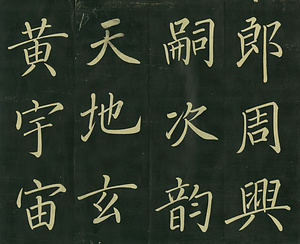 郎周興
嗣次韵
天地玄
黃宇宙